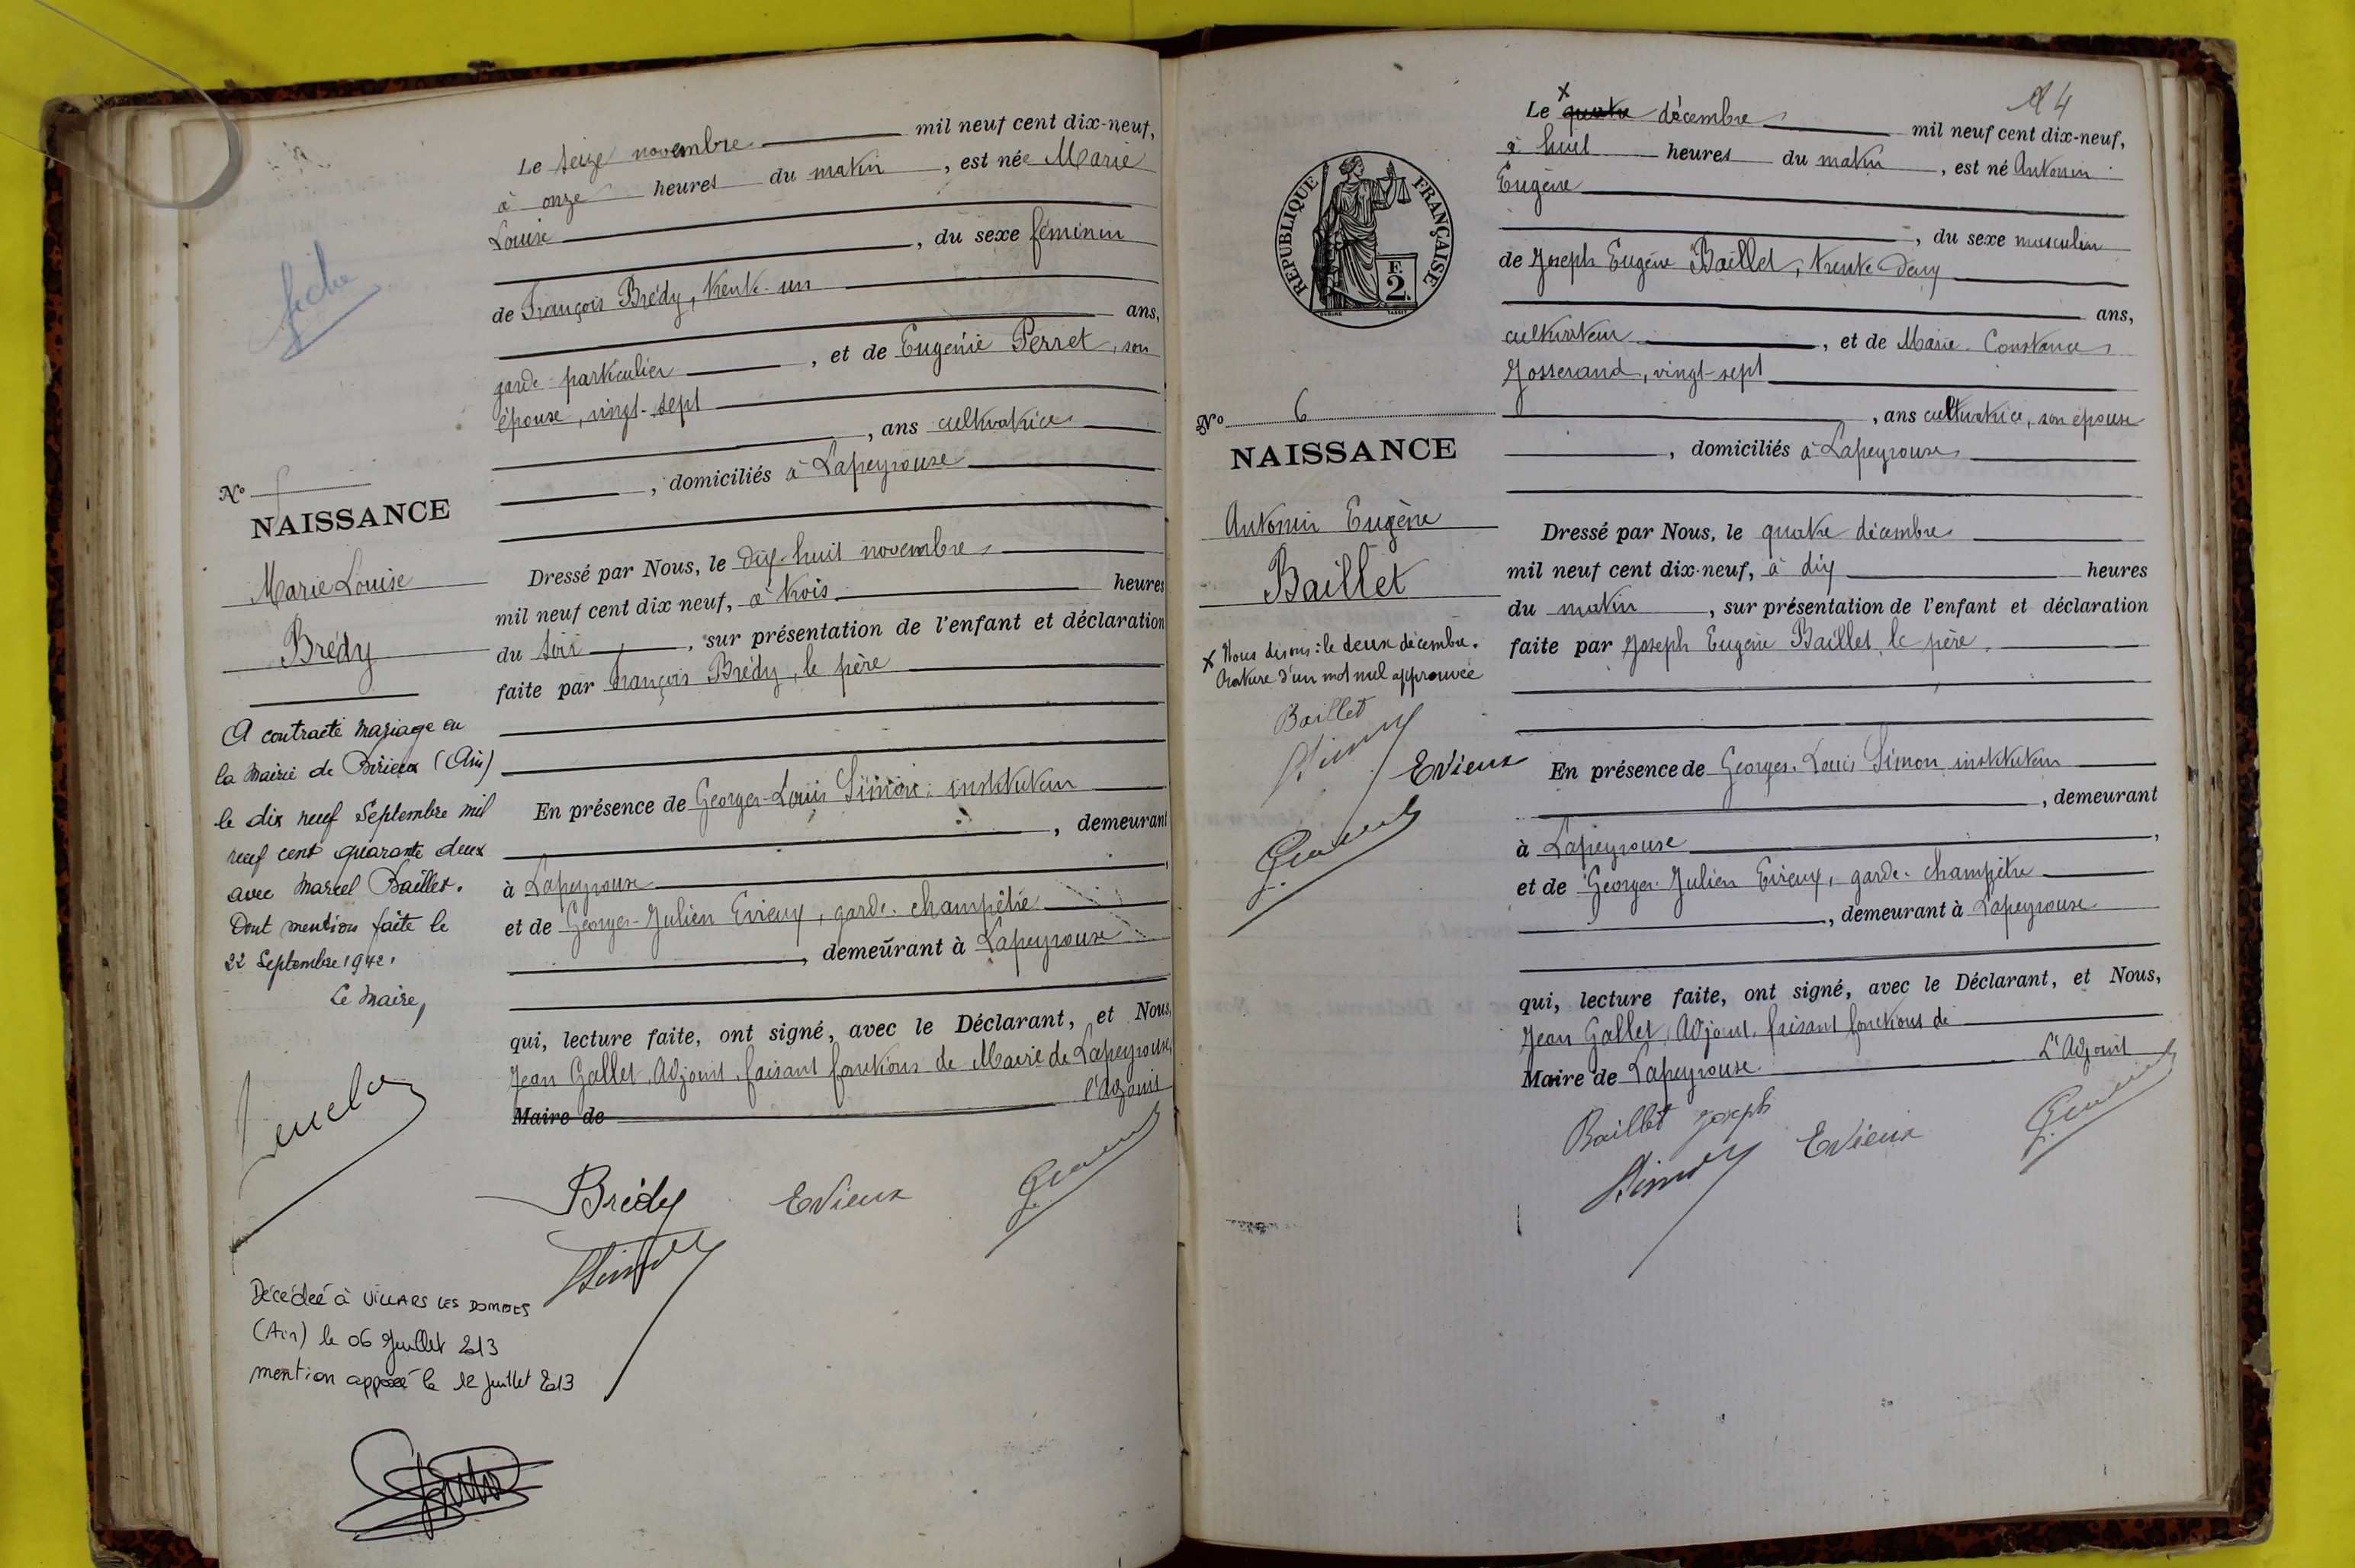 fiche
Le seize novembre mil neuf cent dix-neuf,
à onze heures du matin, est née Marie
Louise, du sexe féminin
de François Brédy, trente-un
ans,
garde-particulier, et de Eugénie Perret, son
épouse, vingt-sept
, ans cultivatrice
, domiciliés à Lapeyrouse
Nº
NAISSANCE
Marie Louise
Brédy
Dressé par Nous, le dix-huit novembre
mil neuf cent dix neuf, à trois heures
du soir, sur présentation de l'enfant et déclaration
faite par François Brédy, le père
A contracté mariage en
la Mairie de Birieux (Ain)
le dix neuf Septembre mil
neuf cent quarante deux
avec Marcel Baillet.
Dont mention faite le
22 Septembre 1942.
Le Maire,
En présence de Georges-Louis Simon, instituteur
, demeurant
à Lapeyrouse,
et de Georges-Julien Evieux, garde-champêtre
, demeurant à Lapeyrouse
qui, lecture faite, ont signé, avec le Déclarant, et Nous,
Jean Gallet, Adjoint, faisant fonctions de Maire de Lapeyrouse,
Maire de l'Adjoint
Brédy Evieux
Simon
Décédée à VILLARS LES DOMBES
(Ain) le 06 Juillet 2013
mention apposée le 12 Juillet 2013
14
Le quatre décembre mil neuf cent dix-neuf,
à huit heures du matin, est né Antonin
Eugène
, du sexe masculin
de Joseph Eugène Baillet, trente-deux
ans,
cultivateur, et de Marie-Constance
Josserand, vingt-sept
, ans cultivatrice, son épouse
, domiciliés à Lapeyrouse
REPUBLIQUE FRANÇAISE
F.
2.
Nº 6
NAISSANCE
Antonin Eugène
Baillet
x Nous disons : le deux décembre.
Rature d'un mot nul approuvée
Baillet
Simon
Evieux
Dressé par Nous, le quatre décembre
mil neuf cent dix-neuf, à dix heures
du matin, sur présentation de l'enfant et déclaration
faite par Joseph Eugène Baillet, le père.
En présence de Georges-Louis Simon, instituteur
, demeurant
à Lapeyrouse,
et de Georges-Julien Evieux, garde-champêtre
, demeurant à Lapeyrouse
qui, lecture faite, ont signé, avec le Déclarant, et Nous,
Jean Gallet, Adjoint, faisant fonctions de
Maire de Lapeyrouse. L'Adjoint
Baillet Joseph
Simon Evieux